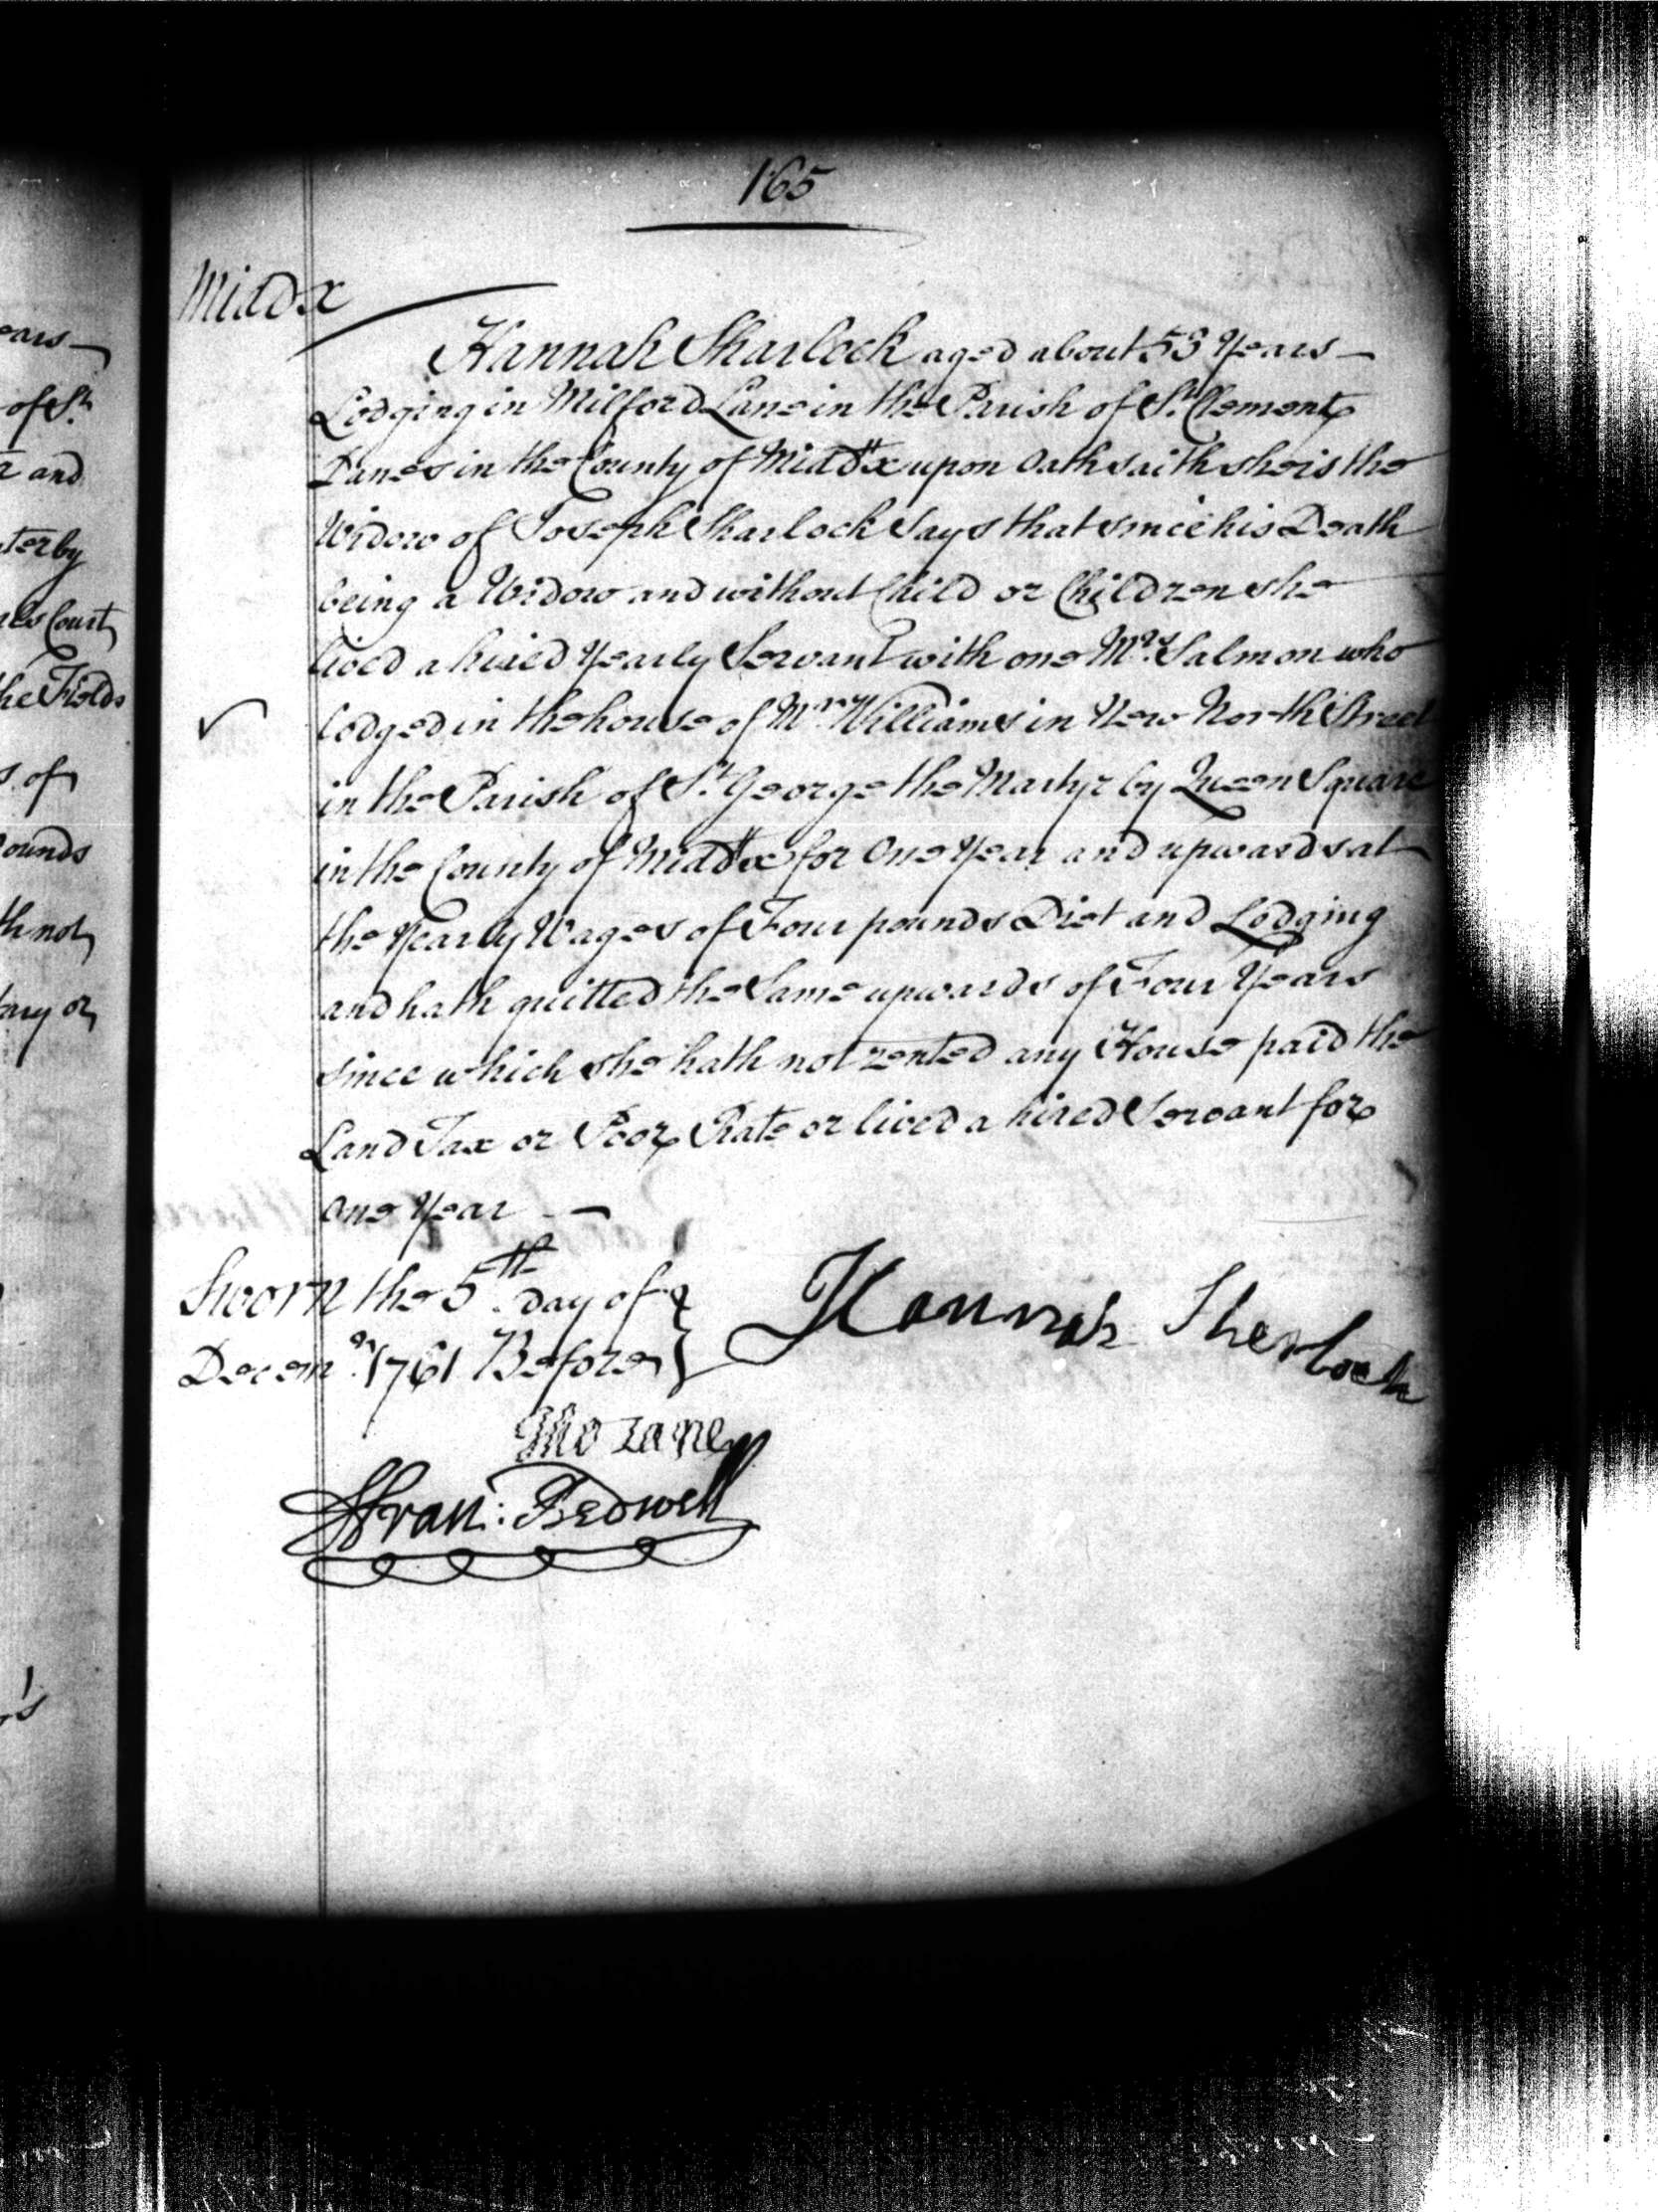 165
Middx
Hannah Sharlock aged about 53 Years
Lodging in Milford Lane in the Parish of St. Clements
Danes in the County of Middx upon Oath saith she is the
Widow of Joseph Sharlock Says that since his Death
being a Widow and without Child or Children she
lived a hired Yearly Servant with one Mrs. Salmon who
lodged in the house of Mr. Williams in New North Street
in the Parish of St. George the Martyr by Queen Square
in the County of Middx for One Year and upwards at
the Yearly Wages of Four pounds Diet and Lodging
and hath quitted the Same upwards of Four Years
since which she hath not rented any House paid the
Land Tax or Poor Rate or lived a hired Servant for
One Year
Sworn the 5th. day of
Decemr. 1761 Before
Hannah Sherlock
Tho Lane
Fran: Bedwell
ears
of St.
and
ter by
Court
the Fields
of
ounds
th not
any or